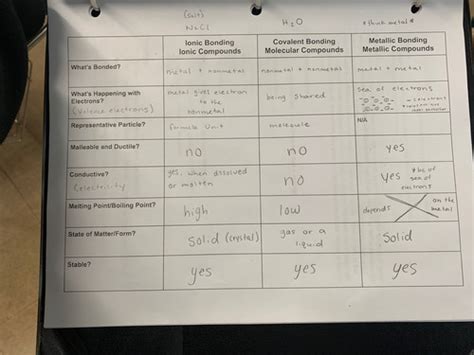 (salt)
NaCl
H2O
* think metal *
Ionic Bonding
Ionic Compounds
Covalent Bonding
Molecular Compounds
Metallic Bonding
Metallic Compounds
What's Bonded?
metal + nonmetal
nonmetal + nonmetal
metal + metal
What's Happening with
Electrons?
(Valence electrons)
metal gives electron
to the
nonmetal
being shared
sea of electrons
Representative Particle?
formula unit
molecule
N/A
Malleable and Ductile?
no
no
yes
Conductive?
(electricity)
yes, when dissolved
or molten
no
yes
* bc of
sea of
electrons
Melting Point/Boiling Point?
high
low
depends
on the
metal
State of Matter/Form?
solid (crystal)
gas or a
liquid
Solid
Stable?
yes
yes
yes